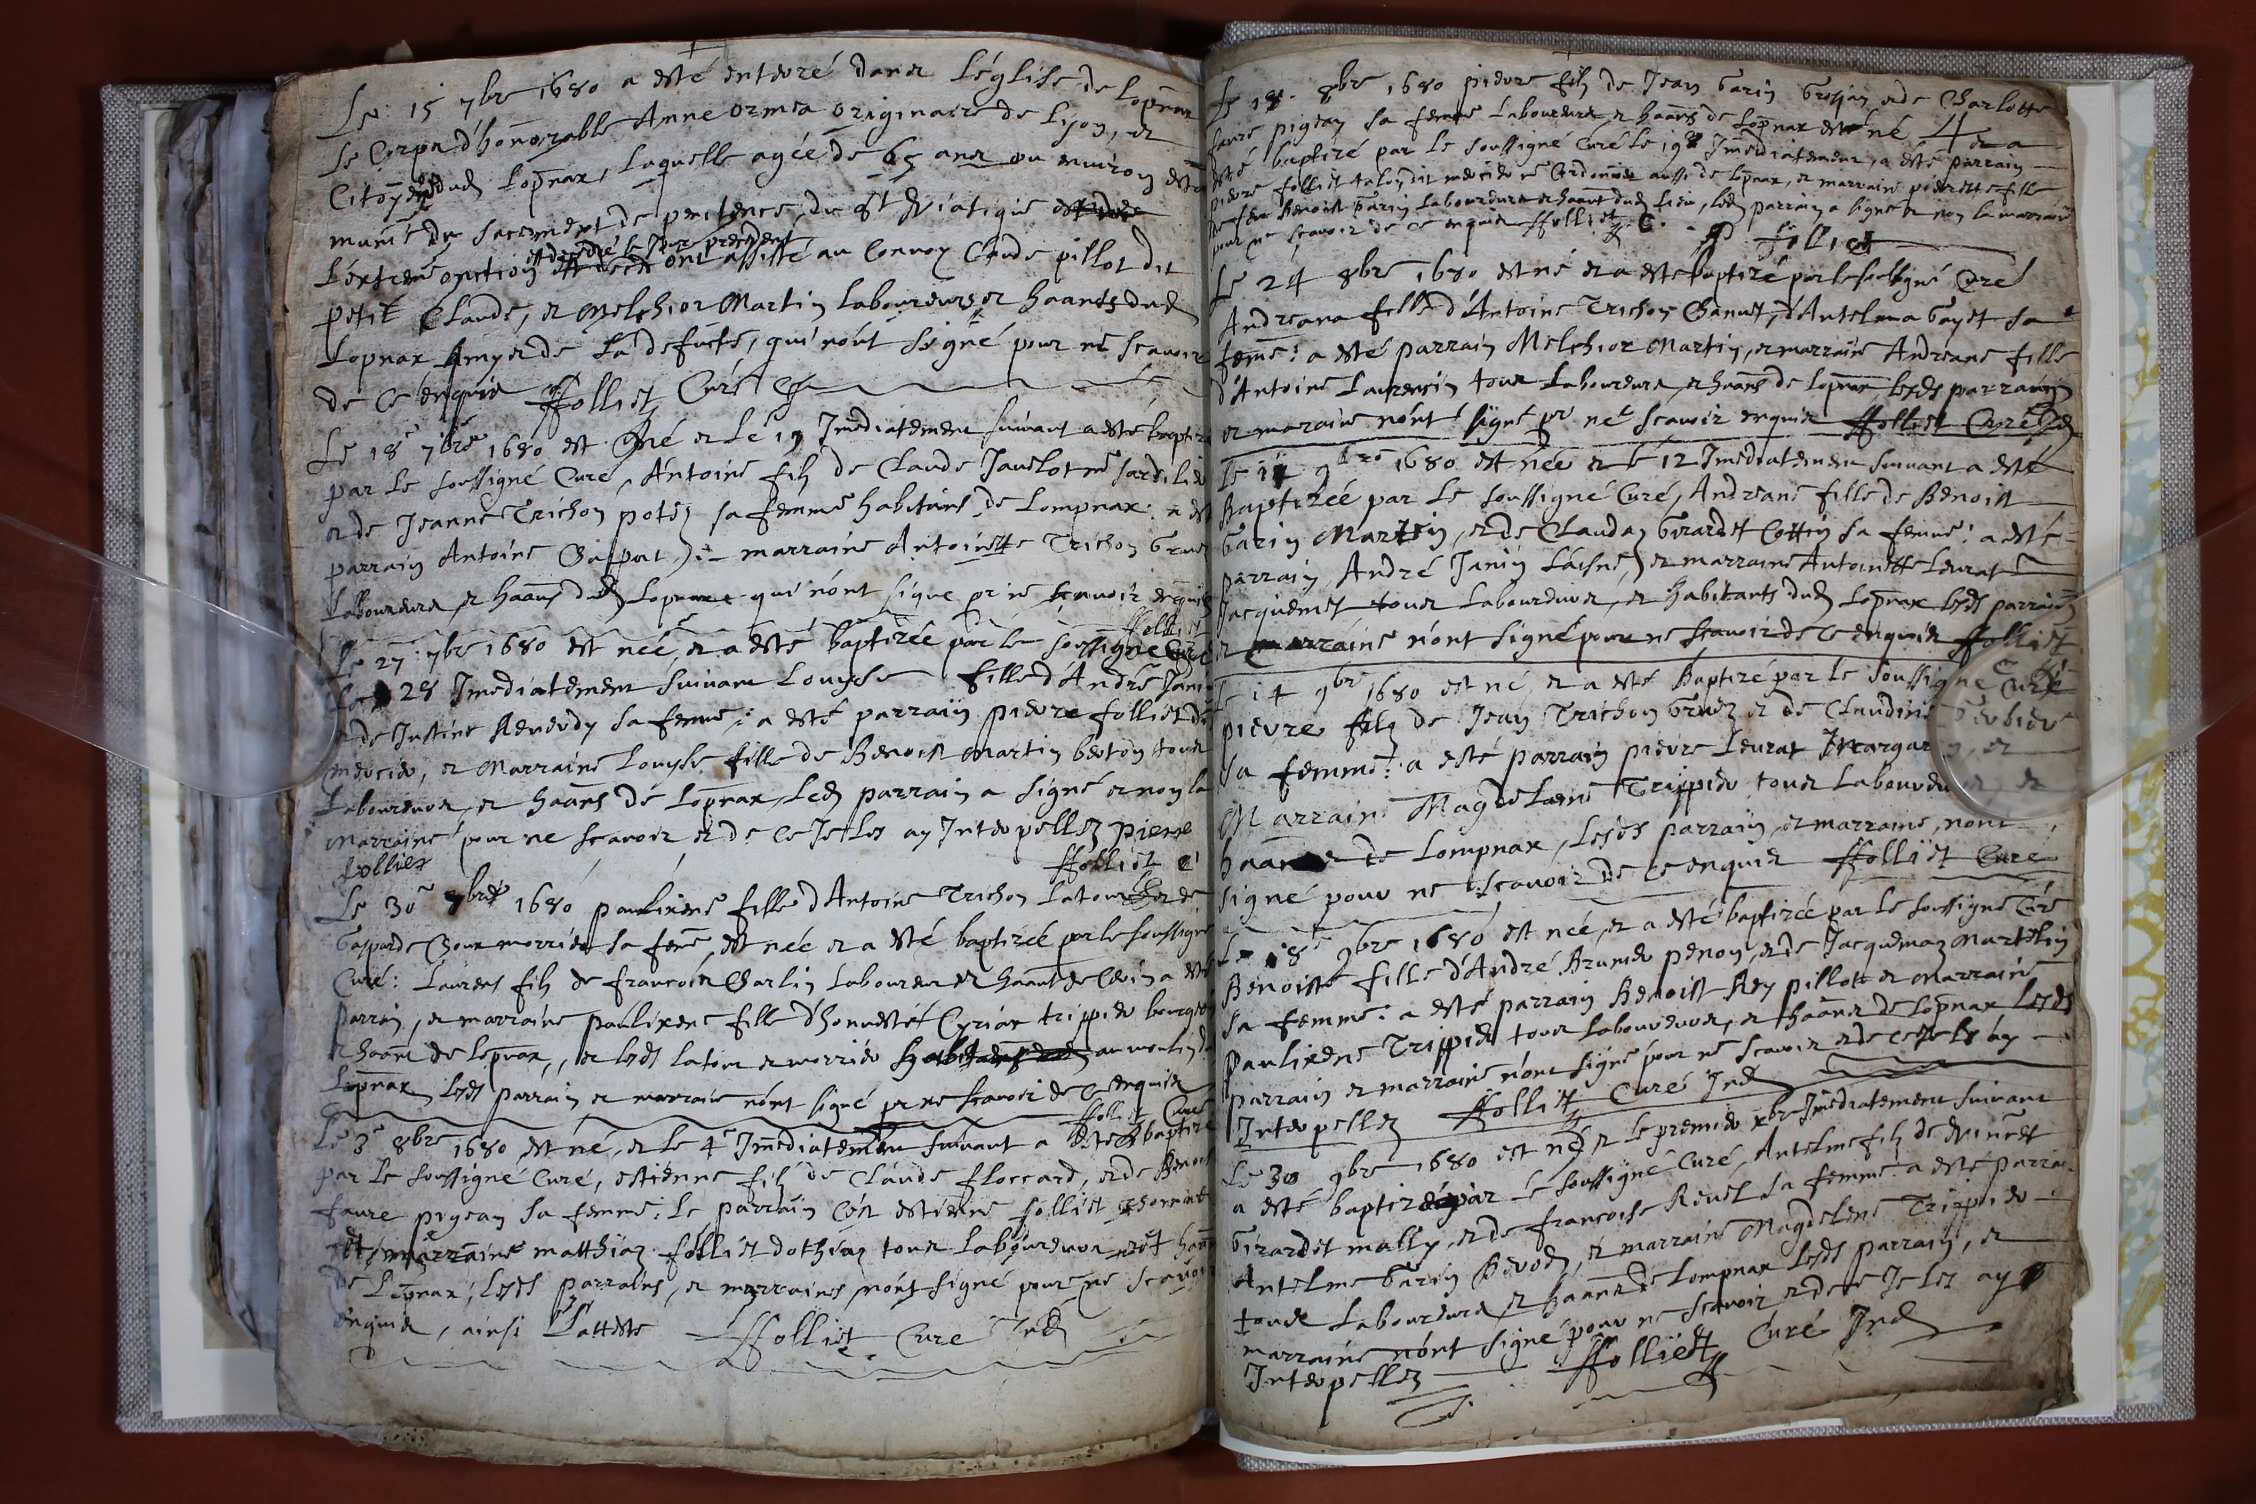 Le 15 7bre 1680 a esté enterré dans l'église de Lopnax
le Corps d'honnorable Anne Ormea originaire de Lyon, et
Citoyene dud Lopnax, Laquelle agée de 65 ans ou environ
munie du sacrement de penitence, du St Viatique
l'extreme onction est decedé le Jour precedent ont assisté au Convoy Claude pillot dit
petit Claude, et Melchior Martin laboureurs et haants dud
Lopnax Amys de la defuncte, qui n'ont signé pour ne scavoir
de ce enquis ffolliet Curé
Le 18e 7bre 1680 est né et le 19 Imediatement suivant a esté baptizé
par le soussigné Curé, Antoine filz de Claude Javelot
et de Jeanne Trichon potez sa femme habitans de Lompnax: a esté
parrain Antoine Gaspart, et marraine Antoinette Trichon
Laboureurs et haans dud Lopnax qui n'ont signe pr ne scavoir enquis
ffolliet
Le 27 7bre 1680 est neé, et a esté baptizée par le soussigné Curé
Le 28 Imediatement suivant Louyse fille d'André Jani
et de Justine Revevdy sa femme: a esté parrain pierre folliet
mercier, et Marraine Louyse fille de Benoist Martin berton tous
Laboureurs, et haans de Lopnax, Led parrain a signé et non la
Marraine pour ne scavoir et de ce Je les ay Interpellez pierre
follier ffolliet C
Le 30e 7bre 1680 paulixene fille d'Antoine Trichon Latour et de
Gasparde sa feme est née et a esté baptizée par le soussigné
Curé: Laurens filz de francois Garlin Laboureur et haant de a esté
parrain, et marraine paulixene fille d'honnesté Cyriax trippier bourgeois
et haant de Lopnax, et lesds latour et morrier au moulin de
Lopnax lesds parrain et marraine n'ont signé pr ne scavoir de ce enquis
ffolliet Curé
Le 3e 8bre 1680 est né, et le 4e Imediatement suivant a esté baptizé
par le soussigné Curé, estienne filz de Claude floccard, et de Benoiste
faure pigeay sa femme: le parrain c'est estienne folliet
et marraine matthiaz folliet dothiaz tous laboureurs et haans
de Lopnax, lesds parrains, et marraines n'ont signé pour ne scavoir
enquis, ainsi l'atteste ffolliet Curé Ind
Le 18 8bre 1680 pierre filz de Jean Garin Grosjan et de Charlotte
faure pigeay sa femme Laboureurs et haans de Lopnax est né et a
esté baptizé par le soussigné Curé le 19e Imediatement, a esté parrain
pierre folliet dit mercier aussi de Lopnax, et marraine pierrette fille
de feu Benoist Garin Laboureur et haant dud lieu, led parrain a signé et non la marraine
pour ne scavoir de ce enquis ffolliet C. P. folliet
Le 24 8bre 1680 est né et a esté baptizé par le soussigné Curé
Andreana fille d'Antoine Trichon Ganet, d'Antelma Gayet sa
feme: a esté parrain Melchior Martin, et marraine Andreane fille
d'Antoine Laurencin tous Laboureurs, et haans de Lopnax, lesds parrain
et maraine n'ont signé pr ne scavoir enquis ffolliet Curé Ind
Le 11 9bre 1680 est née et le 12 Imediatement suivant a esté
Baptizeé par le soussigné Curé, Andreane fille de Benoist
Garin Martin, et de Claudaz Girardet Cottin sa feme: a esté
parrain, André Janin l'aisné, et marraine Antoinette Leurat
Jacquemet tous Laboureurs, et habitants dud Lopnax lesds parrain
et marraine n'ont signé pour ne scavoir de ce enquis ffolliet
Curé
Le 14 9bre 1680 est né et a esté Baptizé par le soussigné Curé
pierre filz de Jean Trichon et de Claudine
sa femme: a esté parrain pierre Leurat Margarin, et
Marraine Magdelaine Trippier tous Laboureurs, et
haans de Lompnax, Lesds parrain, et marraine, n'ont
signé pour ne scavoir de ce enquis ffolliet Curé
Le 18e 9bre 1680 est neé, et a esté baptizeé par le soussigné Curé
Benoiste fille d'André Brunet penon, et de Jacquemaz Martelin
sa femme: a esté parrain Benoist Rey pillott et marraine
Paulixene Trippier tous Laboureurs, et haans de Lopnax lesds
parrain et marraine n'ont signé pour ne scavoir et de ce Je les ay
Interpellez ffolliet Curé Ind
Le 30 9bre 1680 est né, et le premier xbre Imediatement suivant
a esté baptizé par le soussigné Curé, Antelme filz de Vincent
Girardet mally, et de francoise Revel sa femme a esté parrain
Antelme Garin Berod, et marraine Magdelene Trippier
tous Laboureurs et haans de Lompnax lesds parrain, et
marraine n'ont signé pour ne scavoir et de ce Je les ay
Interpellez ffolliet Curé Ind